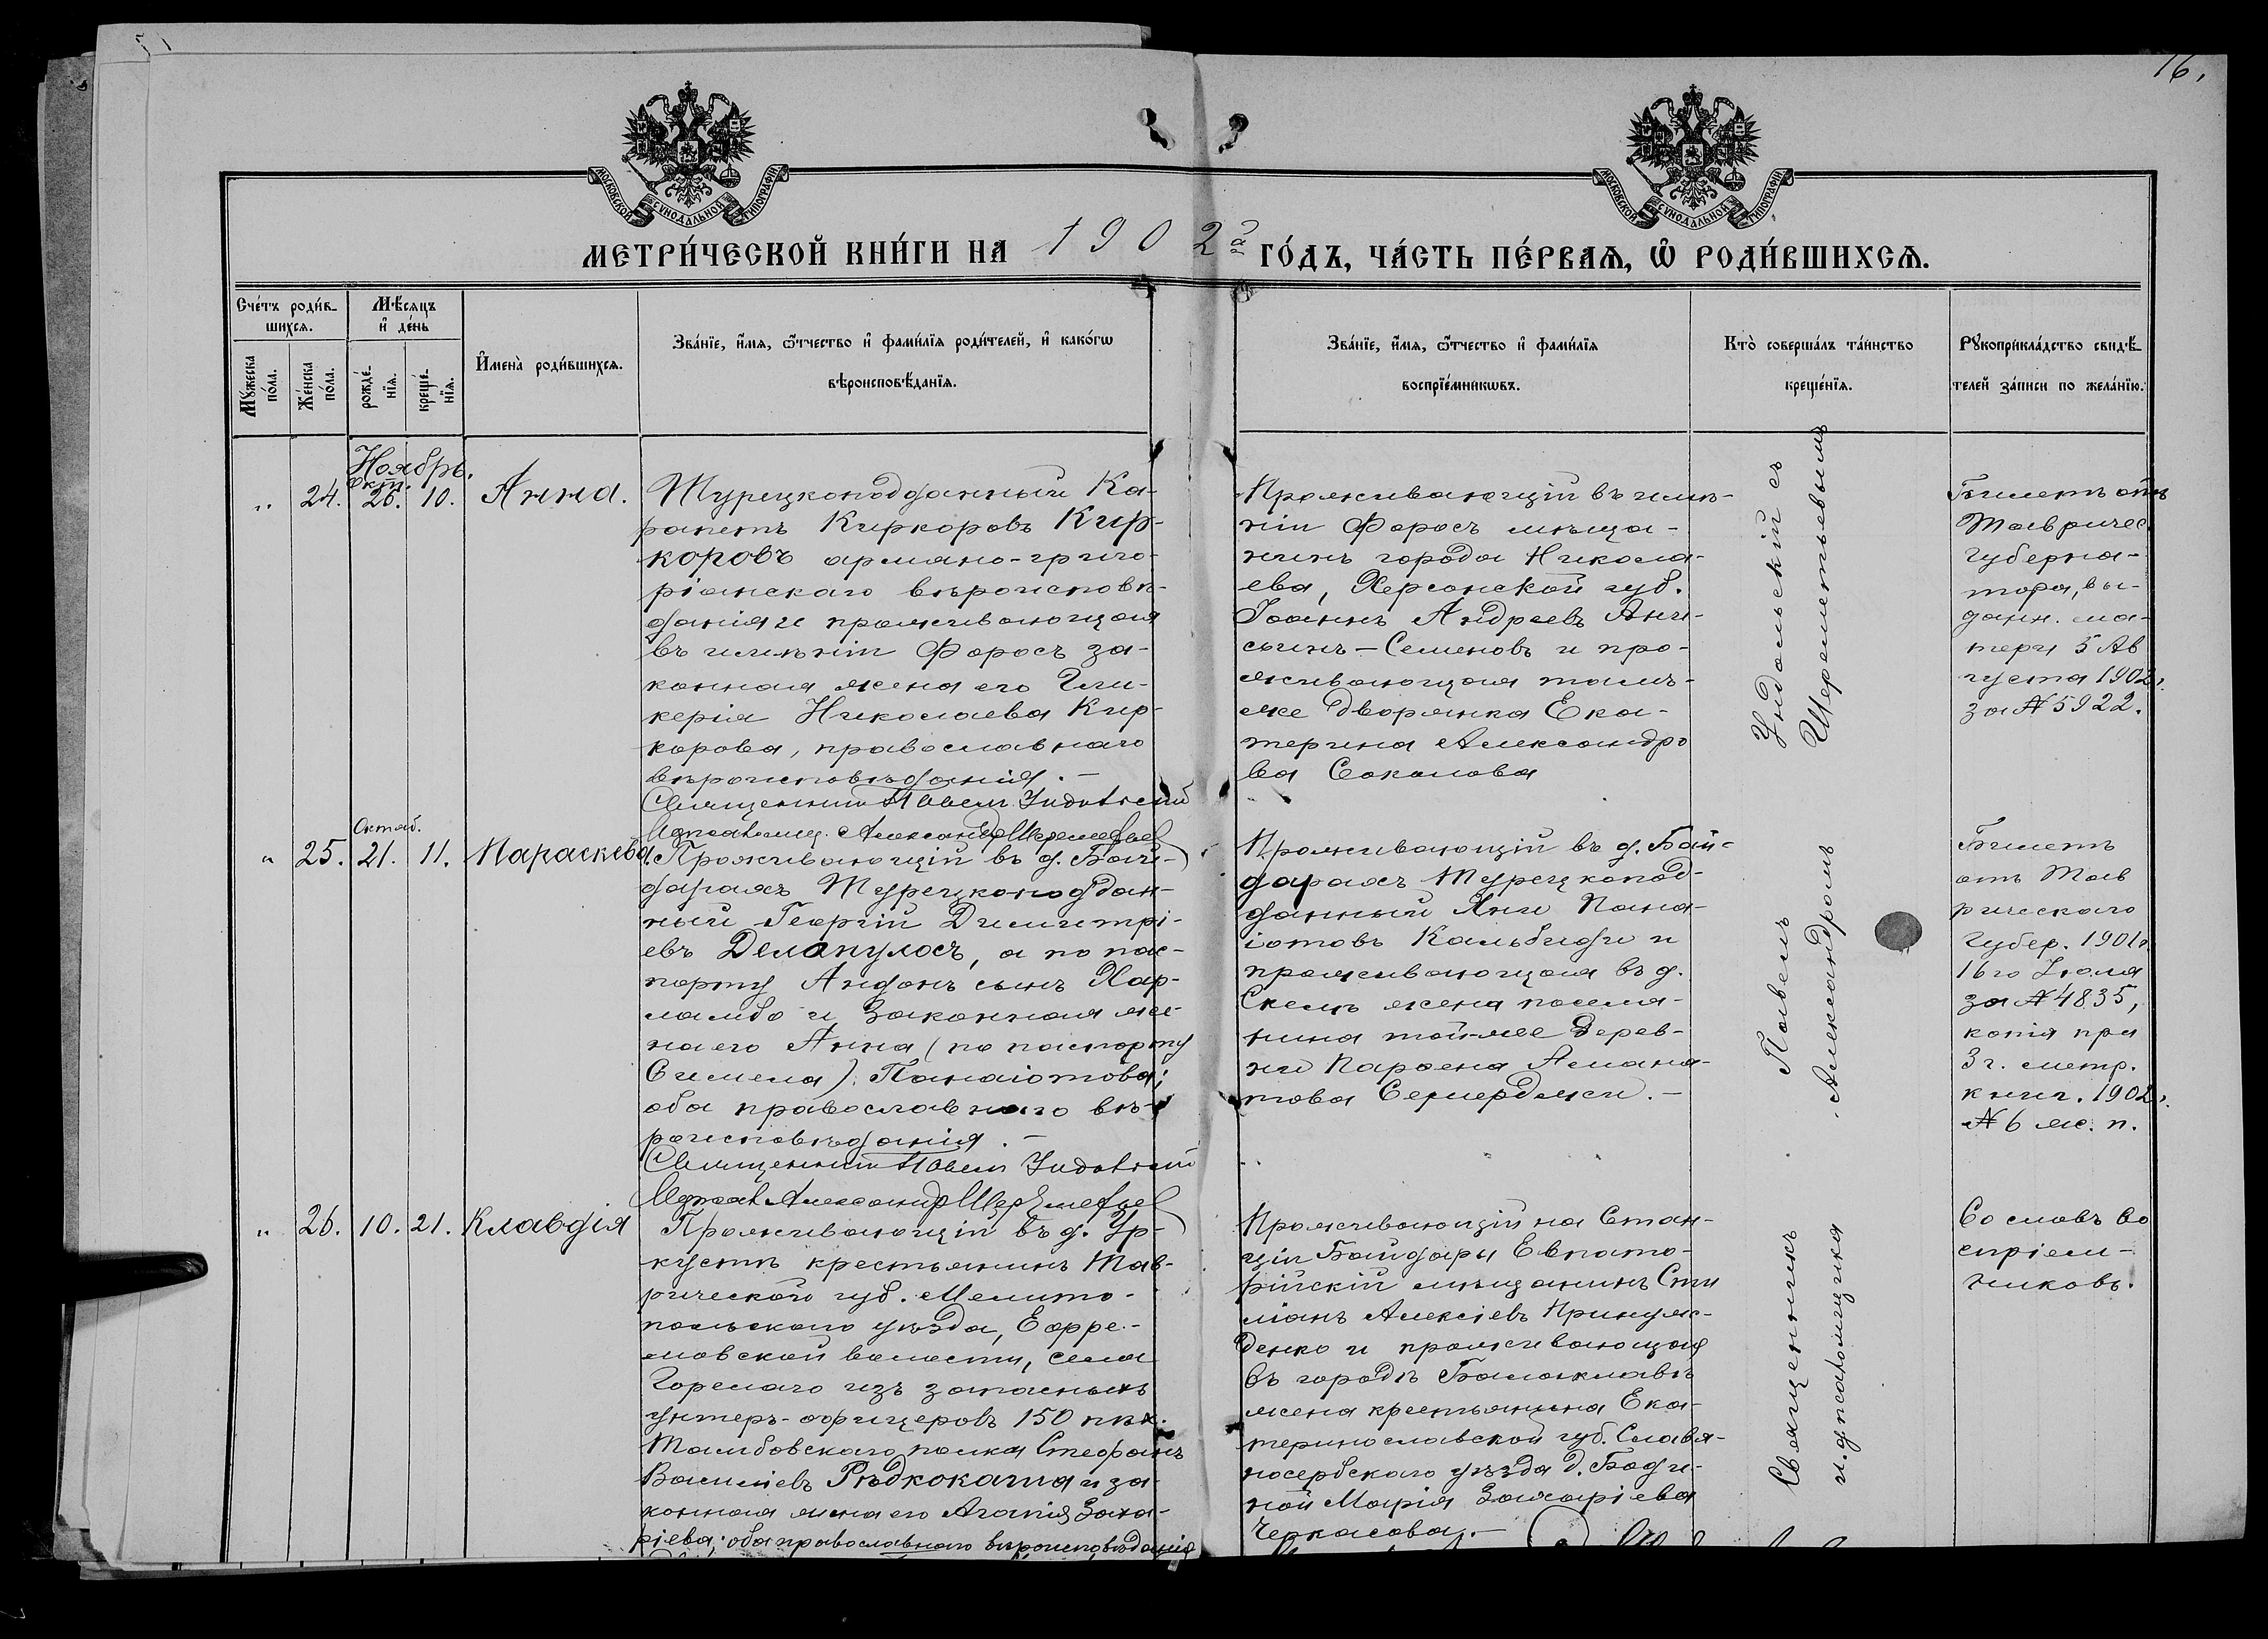 16.
МОСКОВСКОЙ СѴНОДАЛЬНОЙ ТИПОГРАФІИ
МОСКОВСКОЙ СѴНОДАЛЬНОЙ ТИПОГРАФІИ
МЕТРИ́ЧЕСКОЙ КНИ́ГИ НА 1902й ГО́ДЪ, ЧА́СТЬ ПЕ́РВАѦ, Ѽ РОДИ́ВШИХСѦ.
Сче́тъ роди́в-
шихсѧ.
Мꙋ́жеска
по́ла.
Же́нска
по́ла.
Мѣ́сѧцъ
и҆ де́нь
рожде́-
нїѧ.
креще́-
нїѧ.
И҆мена̀ роди́вшихсѧ.
Зва́нїе, и҆́мѧ, ѻ҆́тчество и҆ фами́лїѧ роди́телей, и҆ како́гѡ
вѣроисповѣ́данїѧ.
Зва́нїе, и҆́мѧ, ѻ҆́тчество и҆ фами́лїѧ
воспрїе́мникѡвъ.
Кто̀ соверша́лъ та́инство
креще́нїѧ.
Рꙋкоприкла́дство свидѣ́-
телей за́писи по жела́нїю.
Ноябрь.
Окт.
„ 24. 26. 10. Анна.
Турецкоподданный Ка-
рапетъ Киркоровъ Кир-
коровъ армяно-григо-
ріанскаго вѣроисповѣ-
данія и проживающая
въ имѣніи Форосъ за-
конная жена его Гли-
керія Николаева Кир-
корова, православнаго
вѣроисповѣданія.-
Священникъ Павелъ Ундольскій
Псаломщ. Александръ Шереметьев
Проживающій въ имѣ-
ніи Форосъ мѣща-
нинъ города Никола-
ева, Херсонской губ.
Іоаннъ Андреевъ Ани-
сьинъ-Семеновъ и про-
живающая тамъ-
же дворянка Ека-
терина Александро
ва Соколова
Билетъ отъ
Тавричес.
Губерна-
тора, вы-
данн. ма-
тери 5 Ав
густа 1902г.
за № 5922.
Октяб.
„ 25. 21. 11. Параскева.
Проживающій въ д. Бай-
дарахъ Турецкоподдан-
ный Георгій Димитрі-
евъ Делапулосъ, а по пас-
порту Андонъ сынъ Хар-
ламбо и законная же-
на его Анна (по паспорту
Симела) Панаіотова;
оба православнаго вѣ-
роисповѣданія.-
Священникъ Павелъ Ундольскій
Псалом Александр Шереметьев
Проживающій въ д. Бай-
дарахъ Турецкопод-
данный Яни Пана-
іотовъ Кальбиди и
проживающая въ д.
Скеля жена поселя-
нина той-же дерев-
ни Парѳена Амана-
това Сермерджи.-
Билетъ
отъ Тав
рическаго
Губер. 1901г.
16го Іюля
за № 4835,
копія при
3 г. метр.
книг. 1902г.
№ 6 м. п.
„ 26. 10. 21. Клавдія
Проживающій въ д. Ур-
кустѣ крестьянинъ Тав-
рической губ. Мелито-
польскаго уѣзда, Ефре-
мовской волости, села
Горелаго изъ запасныхъ
унтеръ-офицеровъ 150 пѣх.
Тамбовскаго полка Стефанъ
Васильевъ Рѣдкокаша и за-
конная жена его Агапія Заха-
ріева; оба православнаго вѣроисповѣданія
Проживающій на Стан-
ціи Байдары Евпато-
рійскій мѣщанинъ Сти
ліанъ Алексіевъ Принуж-
денко и проживающая
въ городѣ Балаклавѣ
жена крестьянина Ека-
теринославской губ. Славя-
носербскаго уѣзда д.
Марія Захаріева
Черкасова.-
Со словъ во
спріем-
никовъ.
Священникъ Павелъ Ундольскій съ
и.д. псаломщика Александромъ Шереметьевымъ